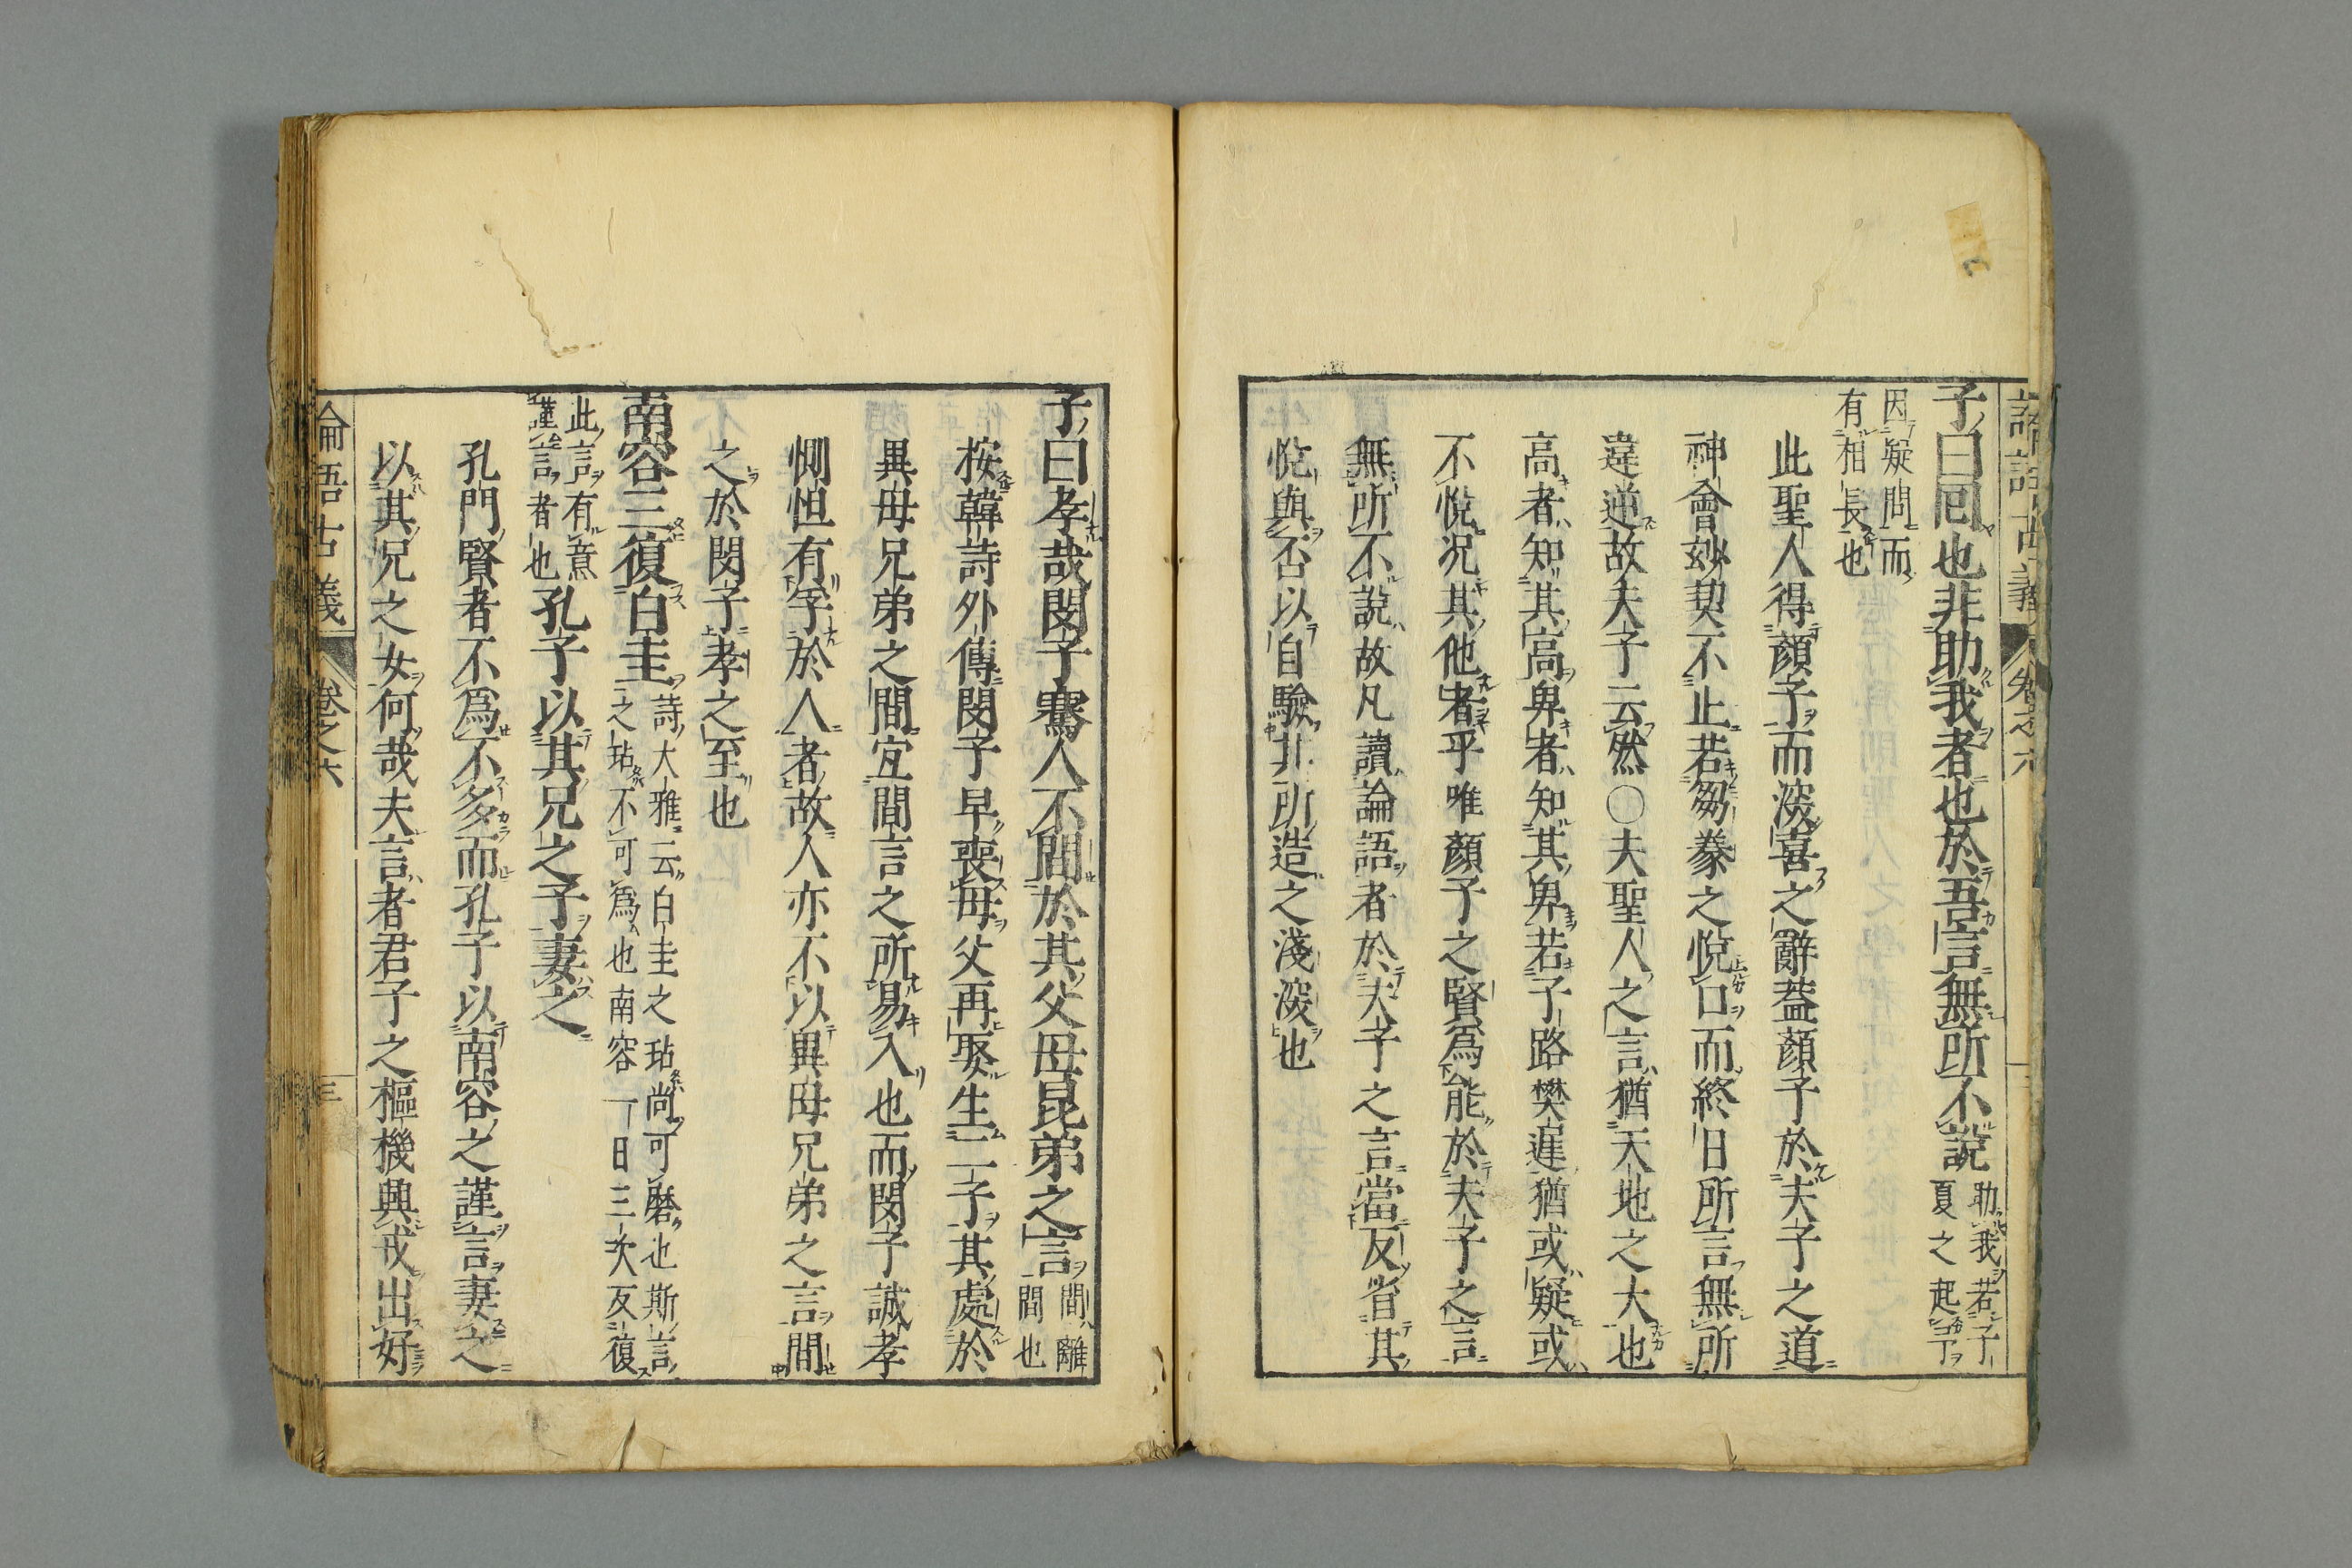 子曰回也非助我者也於吾言無所不說 助我若子夏之起予
因疑問而有相長也
此聖人得顏子而深喜之辭蓋顏子於夫子之道
神會妙契不止若芻豢之悅口而終日所言無所
違逆故夫子云然〇夫聖人之言猶天地之大也
高者知其高卑者知其卑若子路樊遲猶或疑或
不悅况其他者乎唯顏子之賢爲能於夫子之言
無所不說故凡讀論語者於夫子之言當反省其
悅與否以自驗其所造之淺深也
子曰孝哉閔子騫人不間於其父母昆弟之言 間離間也
按韓詩外傳閔子早喪母父再娶生二子其處於
異母兄弟之間宜間言之所易入也而閔子誠孝
惻怛有孚於人者故人亦不以異母兄弟之言間
之於閔子孝之至也
南容三復白圭 詩大雅云白圭之玷尚可磨也斯言之玷不可爲也南容一日三次反復
此言有意謹言者也 孔子以其兄之子妻之
孔門賢者不爲不多而孔子以南容之謹言妻之
以其兄之女何哉夫言者君子之樞機興戎出好
論語古義 卷之六 三